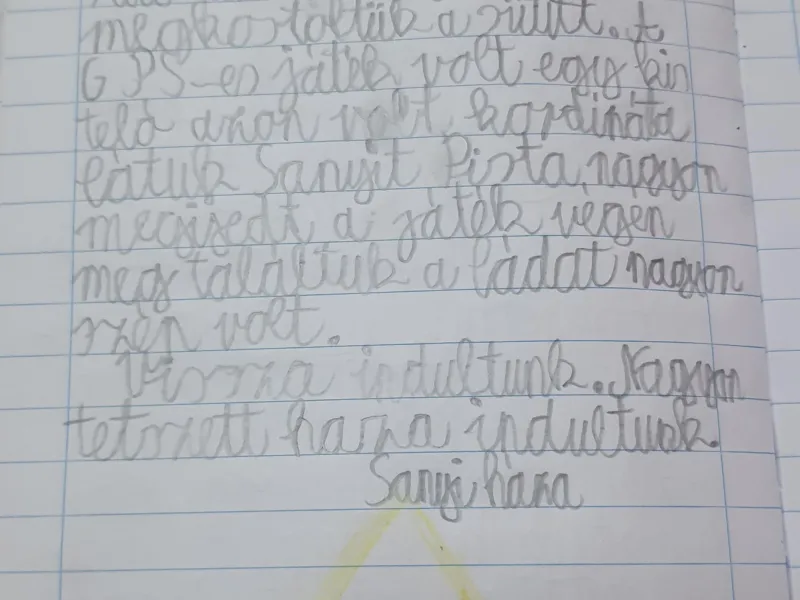 megkostoltük a sültt. t
GPS-es játék volt egy kin
telő anon volt kordináta
látuk Sanyit Pista, nagyon
megijedt a játék vegen
meg talaltuk a ládat nagyon
szép volt.
Vissza indultunk. Nagyon
tetszett haza indultunk.
Sanyi háza